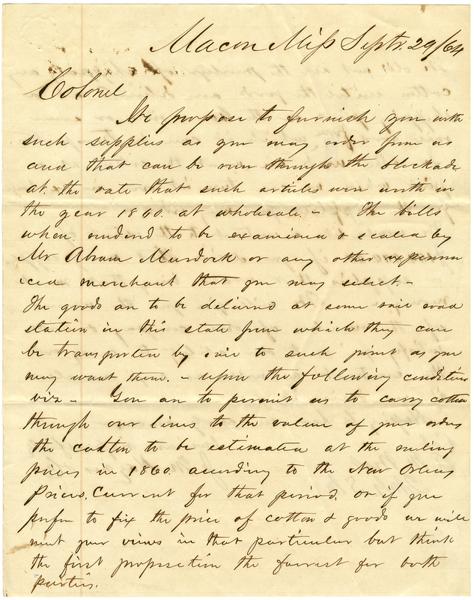 Macon Miss Septr 29/64
Colonel
We propose to furnish you with
such supplies as you may order from us
and that can be run through the blockade
at the rate that such articles were worth in
the year 1860. at wholesale. - The bills
when rendered to be examined & scaled by
Mr Abram Murdock or any other experien
ced merchant that you may select -
The goods are to be delivered at some rail road
station in this state from which they can
be transported by rail to such point as you
may want them. - upon the following conditions
viz - You are to permit us to carry cotton
through our lines to the value of your orders
the cotton to be estimated at the ruling
prices in 1860. according to the New Orleans
Prices Current for that period, or if you
prefer to fix the price of cotton & goods we will
meet your views in that particular but think
the first proposition the fairest for both
parties.